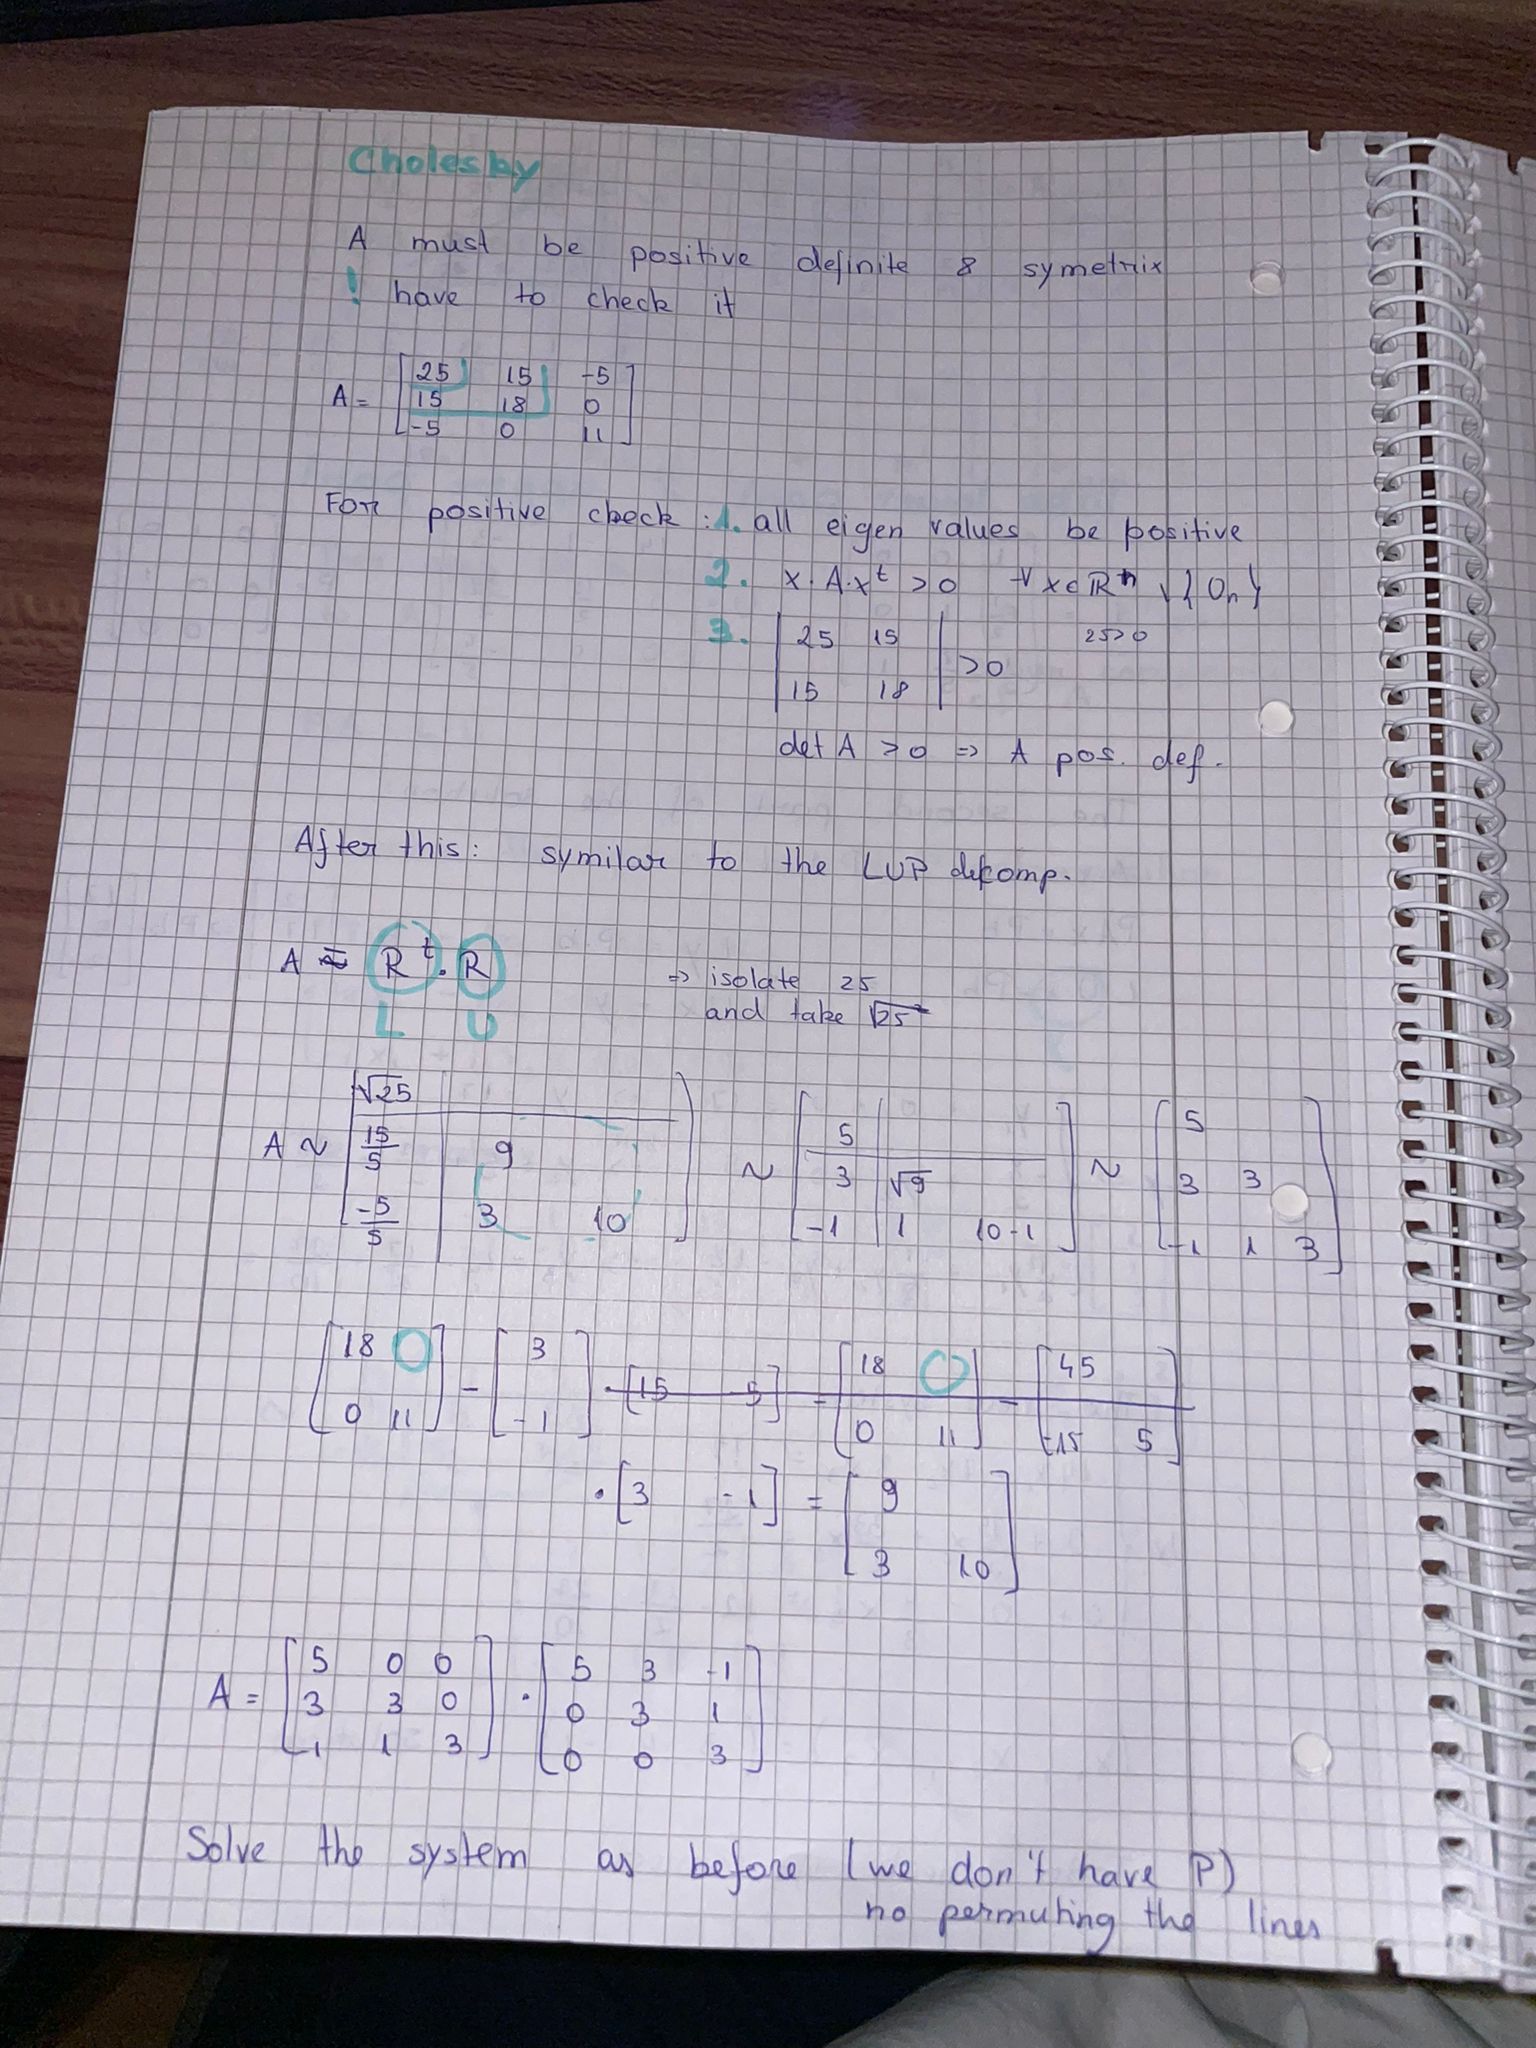 Cholesky
A must be positive definite & symetrix
! have to check it
A = [25 15 -5
15 18 0
-5 0 11]
For positive check : 1. all eigen values be positive
2. x · A · x^t > 0 ∀ x ∈ ℝ^n \ { 0n }
3. | 25 15 25>0
15 18 | >0
det A > 0 => A pos. def.
After this: symilar to the LUP dekomp.
A = R^t · R => isolate 25
L U and take √25
A ~ [√25
15/5 9
-5/5 3 10] ~ [5
3 √9
-1 1 10-1] ~ [5
3 3
-1 1 3]
[18 0
0 11] - [3
-1] · [15 5] = [18 0
0 11] - [45
-15 5]
· [3 -1] = [9
3 10]
A = [5 0 0
3 3 0
-1 1 3] · [5 3 -1
0 3 1
0 0 3]
Solve the system as before (we don't have P)
no permuting the lines